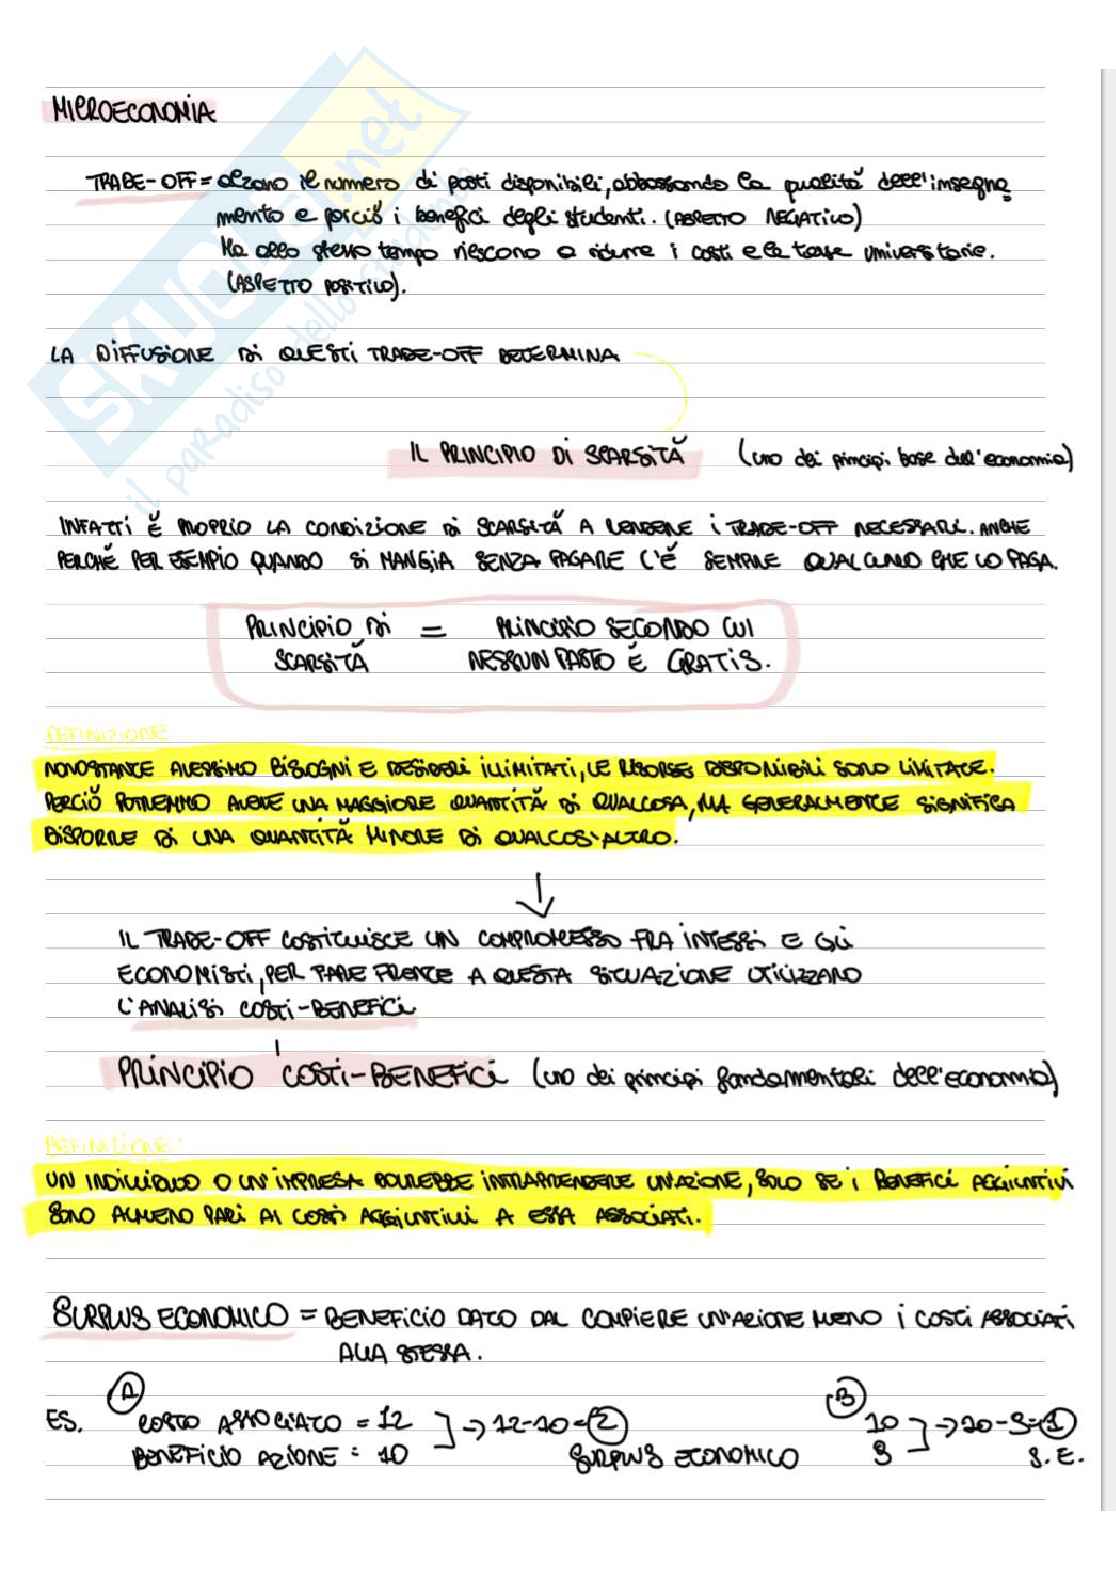 MICROECONOMIA
TRADE-OFF = alzano il numero di posti disponibili, abbassando la qualità dell'insegna
mento e perciò i benefici degli studenti. (ASPETTO NEGATIVO)
Ma allo stesso tempo riescono a ridurre i costi e le tasse universitarie.
(ASPETTO POSITIVO).
LA DIFFUSIONE DI QUESTI TRADE-OFF DETERMINA
IL PRINCIPIO DI SCARSITÀ (uno dei principi base dell'economia)
INFATTI È PROPRIO LA CONDIZIONE DI SCARSITÀ A RENDERE I TRADE-OFF NECESSARI. ANCHE
PERCHÉ PER ESEMPIO QUANDO SI MANGIA SENZA PAGARE C'È SEMPRE QUALCUNO CHE LO PAGA.
PRINCIPIO DI = PRINCIPIO SECONDO CUI
SCARSITÀ NESSUN PASTO È GRATIS.
DEFINIZIONE
NONOSTANTE AVESSIMO BISOGNI E DESIDERI ILLIMITATI, LE RISORSE DISPONIBILI SONO LIMITATE.
PERCIÒ POTREMMO AVERE UNA MAGGIORE QUANTITÀ DI QUALCOSA, MA GENERALMENTE SIGNIFICA
DISPORRE DI UNA QUANTITÀ MINORE DI QUALCOS'ALTRO.
IL TRADE-OFF COSTITUISCE UN COMPROMESSO FRA INTESSI E GLI
ECONOMISTI, PER FARE FRONTE A QUESTA SITUAZIONE UTILIZZANO
L'ANALISI COSTI-BENEFICI
PRINCIPIO COSTI-BENEFICI (uno dei principi fondamentali dell'economia)
DEFINIZIONE:
UN INDIVIDUO O UN'IMPRESA DOVREBBE INTRAPRENDERE UN'AZIONE, SOLO SE I BENEFICI AGGIUNTIVI
SONO ALMENO PARI AI COSTI AGGIUNTIVI A ESSA ASSOCIATI.
SURPLUS ECONOMICO = BENEFICIO DATO DAL COMPIERE UN'AZIONE MENO I COSTI ASSOCIATI
ALLA STESSA.
A B
ES. COSTO ASSOCIATO = 12 → 12-10=2 10 → 10-9=1
BENEFICIO AZIONE = 10 SURPLUS ECONOMICO 9 S.E.
SKUOLA.net
il paradiso dello studente